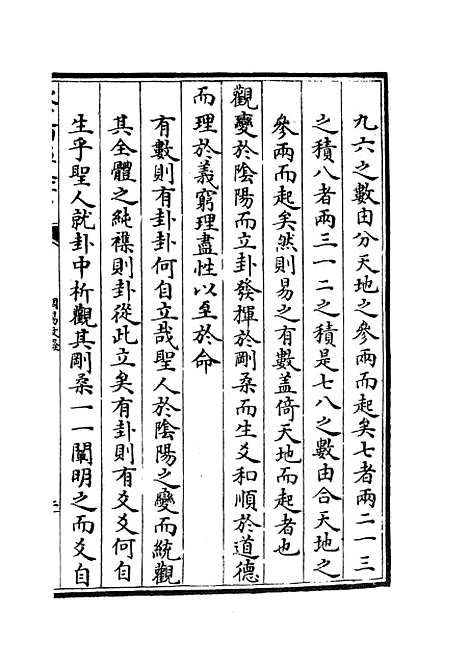 九六之數由分天地之參兩而起矣七者兩二一三
之積八者兩三一二之積是七八之數由合天地之
參兩而起矣然則易之有數盖倚天地而起者也
觀變於陰陽而立卦發揮於剛柔而生爻和順於道德
而理於義窮理盡性以至於命
有數則有卦卦何自立哉聖人於陰陽之變而統觀
其全體之純襍則卦從此立矣有卦則有爻爻何自
生乎聖人就卦中析觀其剛柔一一闡明之而爻自